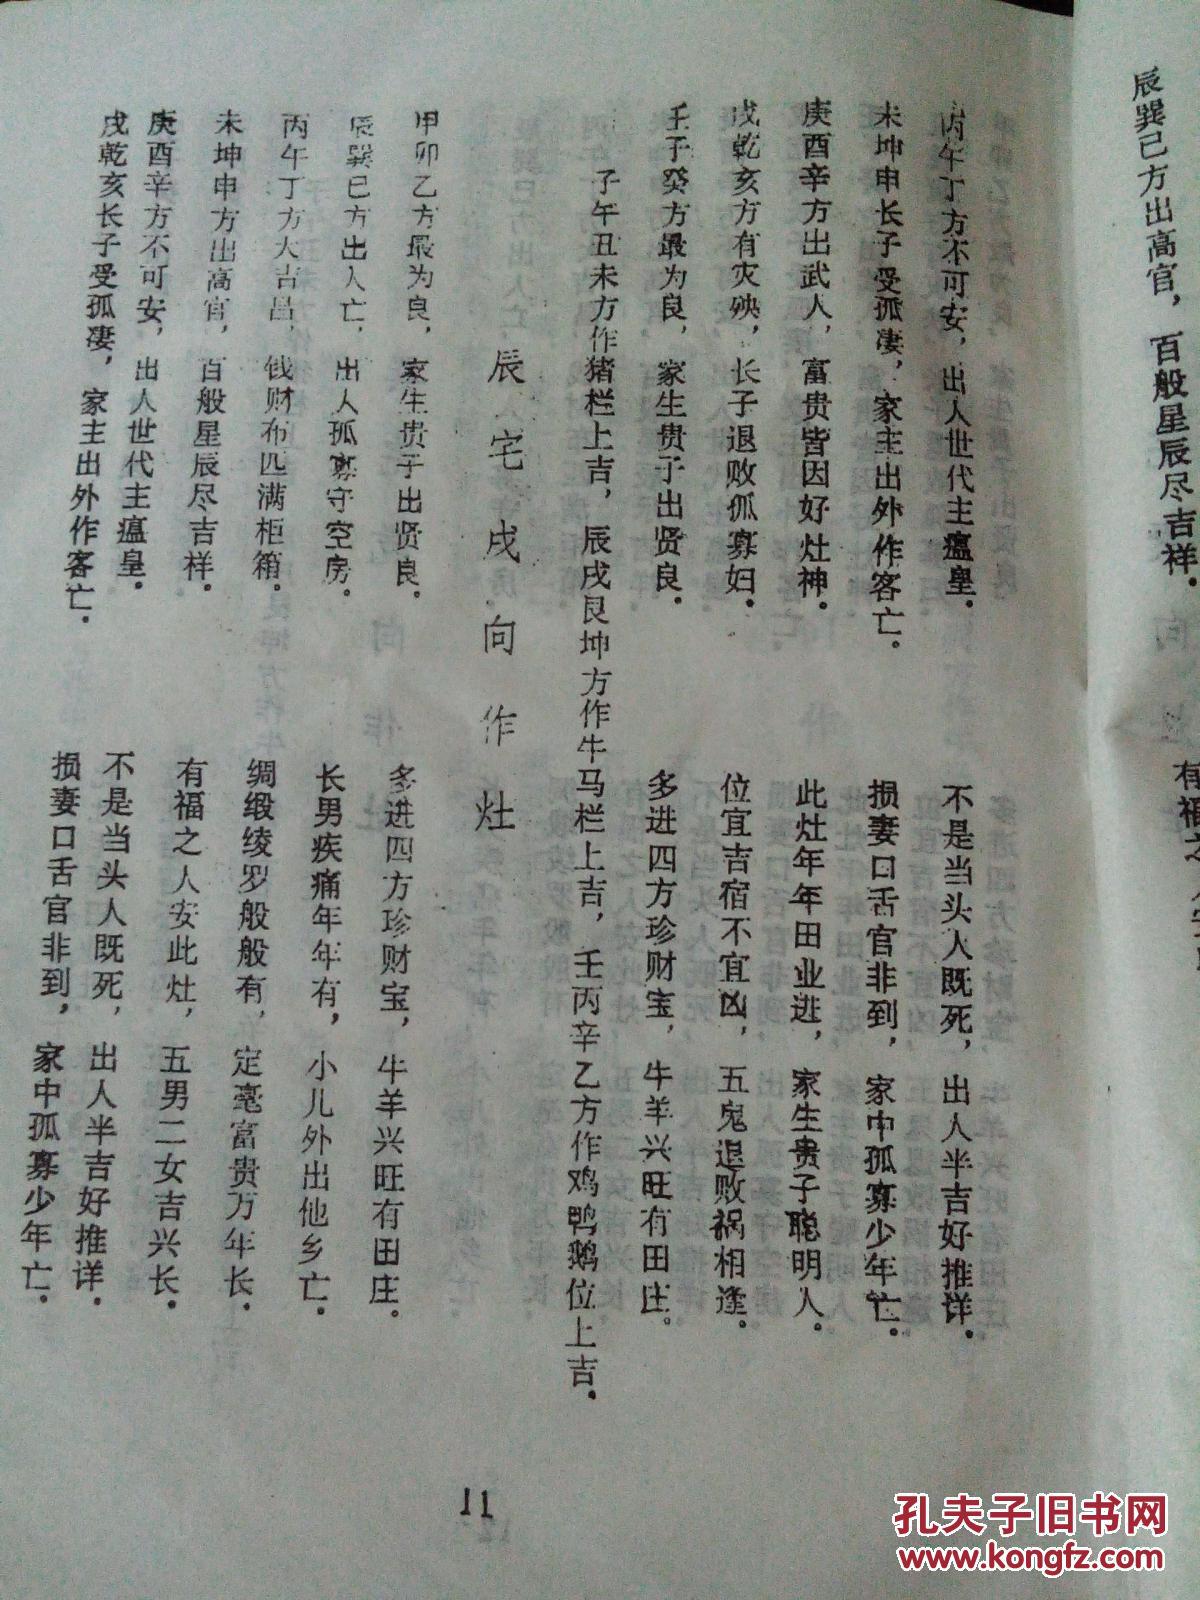 辰巽已方出高官，百般星辰尽吉祥．
有福之人安
丙午丁方不可安，出人世代主瘟皇．
不是当头人既死，出人半吉好推详．
未坤申长子受孤凄，家主出外作客亡．
损妻口舌官非到，家中孤寡少年亡．
庚酉辛方出武人，富贵皆因好灶神．
此灶年年田业进，家生贵子聪明人．
戌乾亥方有灾殃，长子退败孤寡妇．
位宜吉宿不宜凶，五鬼退败祸相逢．
壬子癸方最为良，家生贵子出贤良．
多进四方珍财宝，牛羊兴旺有田庄．
子午丑未方作猪栏上吉，辰戌艮坤方作牛马栏上吉，壬丙辛乙方作鸡鸭鹅位上吉．
辰宅戌向作灶
甲卯乙方最为良，家生贵子出贤良．
多进四方珍财宝，牛羊兴旺有田庄．
辰巽巳方出人亡，出人孤寡守空房．
长男疾痛年年有，小儿外出他乡亡．
丙午丁方大吉昌，钱财布匹满柜箱．
绸缎绫罗般般有，定毫富贵万年长．
未坤申方出高官，百般星辰尽吉祥．
有福之人安此灶，五男二女吉兴长．
庚酉辛方不可安，出人世代主瘟皇．
不是当头人既死，出人半吉好推详．
戌乾亥长子受孤凄，家主出外作客亡．
损妻口舌官非到，家中孤寡少年亡．
11
孔夫子旧书网
www.kongfz.com